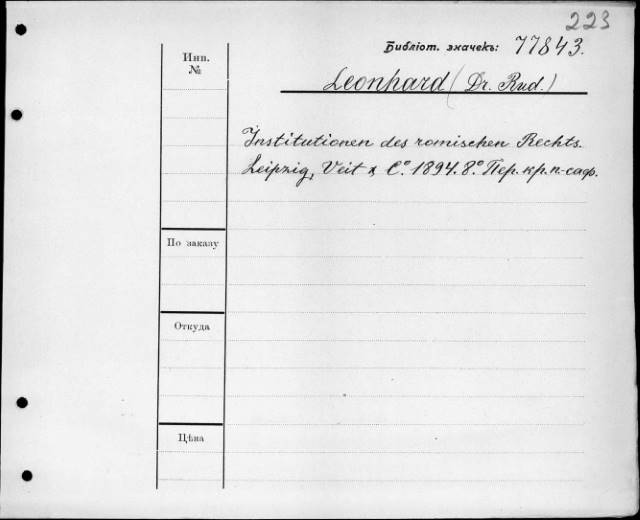 223
Библіот. значекъ: 77843.
Инв. №
Leonhard (Dr. Rud.)
Institutionen des romischen Rechts.
Leipzig, Veit & Cº. 1894. 8º. Пер. кр. п-саф.
По заказу
Откуда
Цѣна